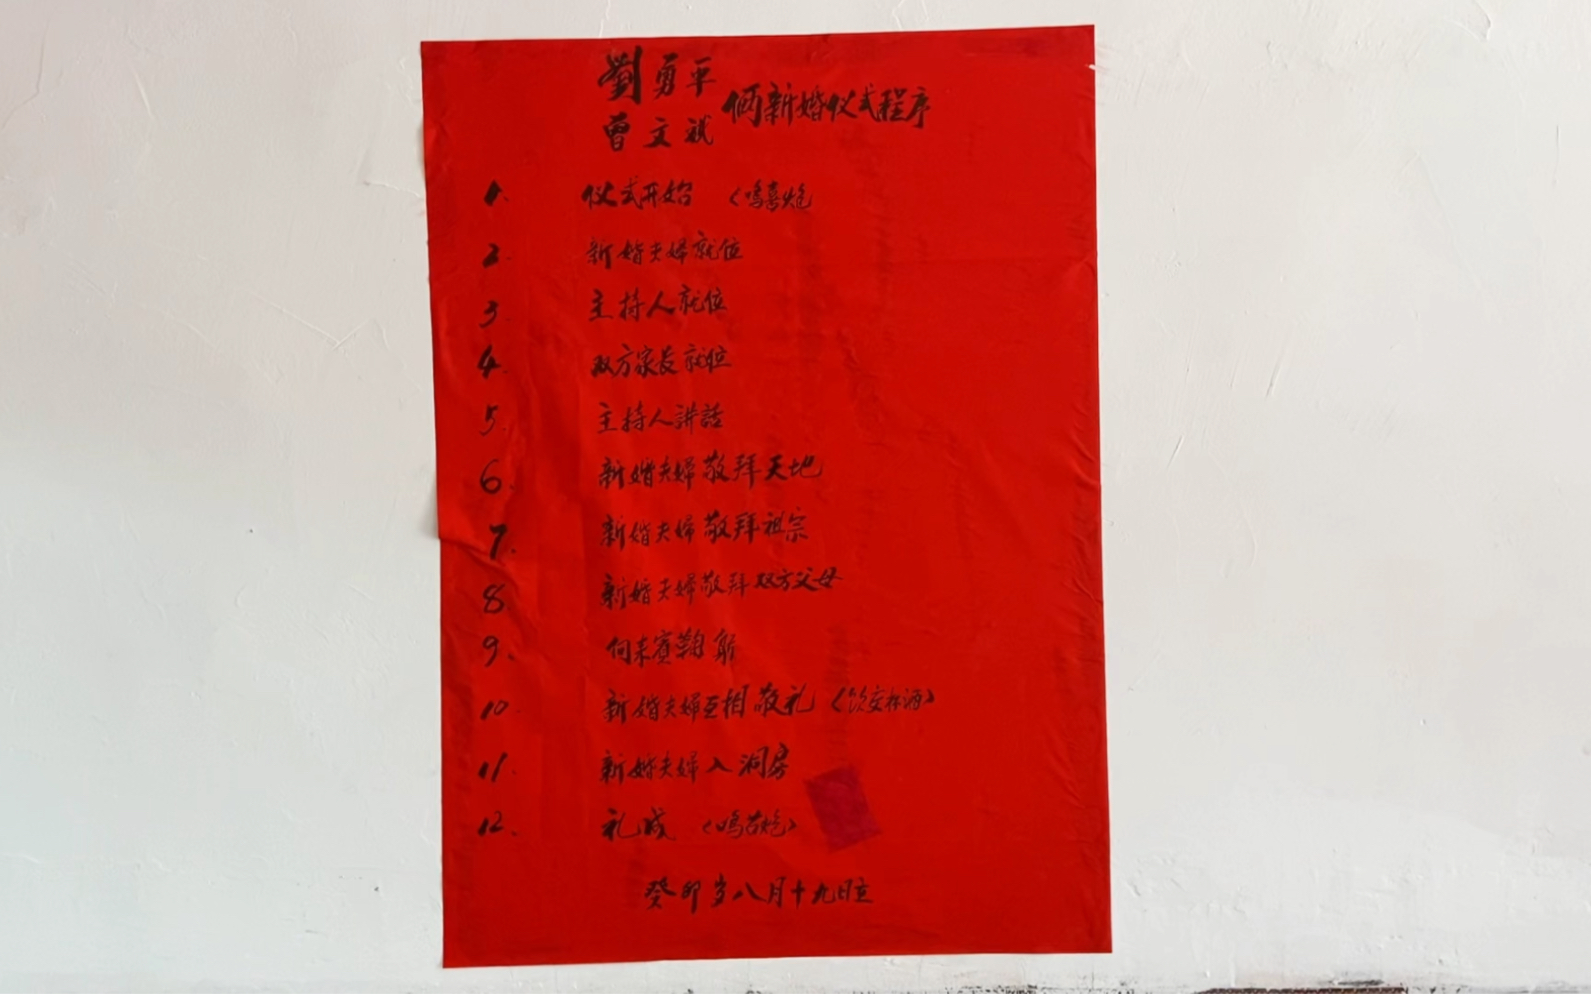 劉勇平
曾文斌
俩新婚仪式程序
1. 仪式开始 (鸣喜炮
2. 新婚夫婦就位
3. 主持人就位
4. 双方家长就位
5. 主持人講話
6. 新婚夫婦敬拜天地
7. 新婚夫婦敬拜祖宗
8 新婚夫婦敬拜双方父母
9. 向来賓鞠躬
10 新婚夫婦互相敬礼(饮交杯酒)
11. 新婚夫婦入洞房
12. 礼成 (鸣喜炮)
癸卯岁八月十九日立